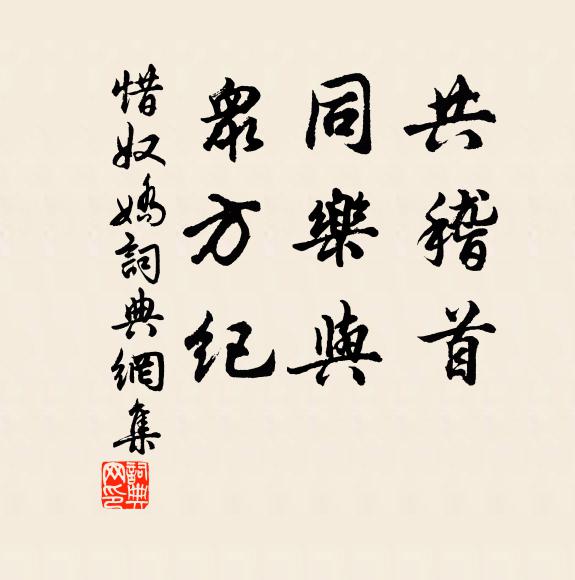 共稽首
同樂與
眾方紀
惜奴嬌詞典網集
詞典
网印